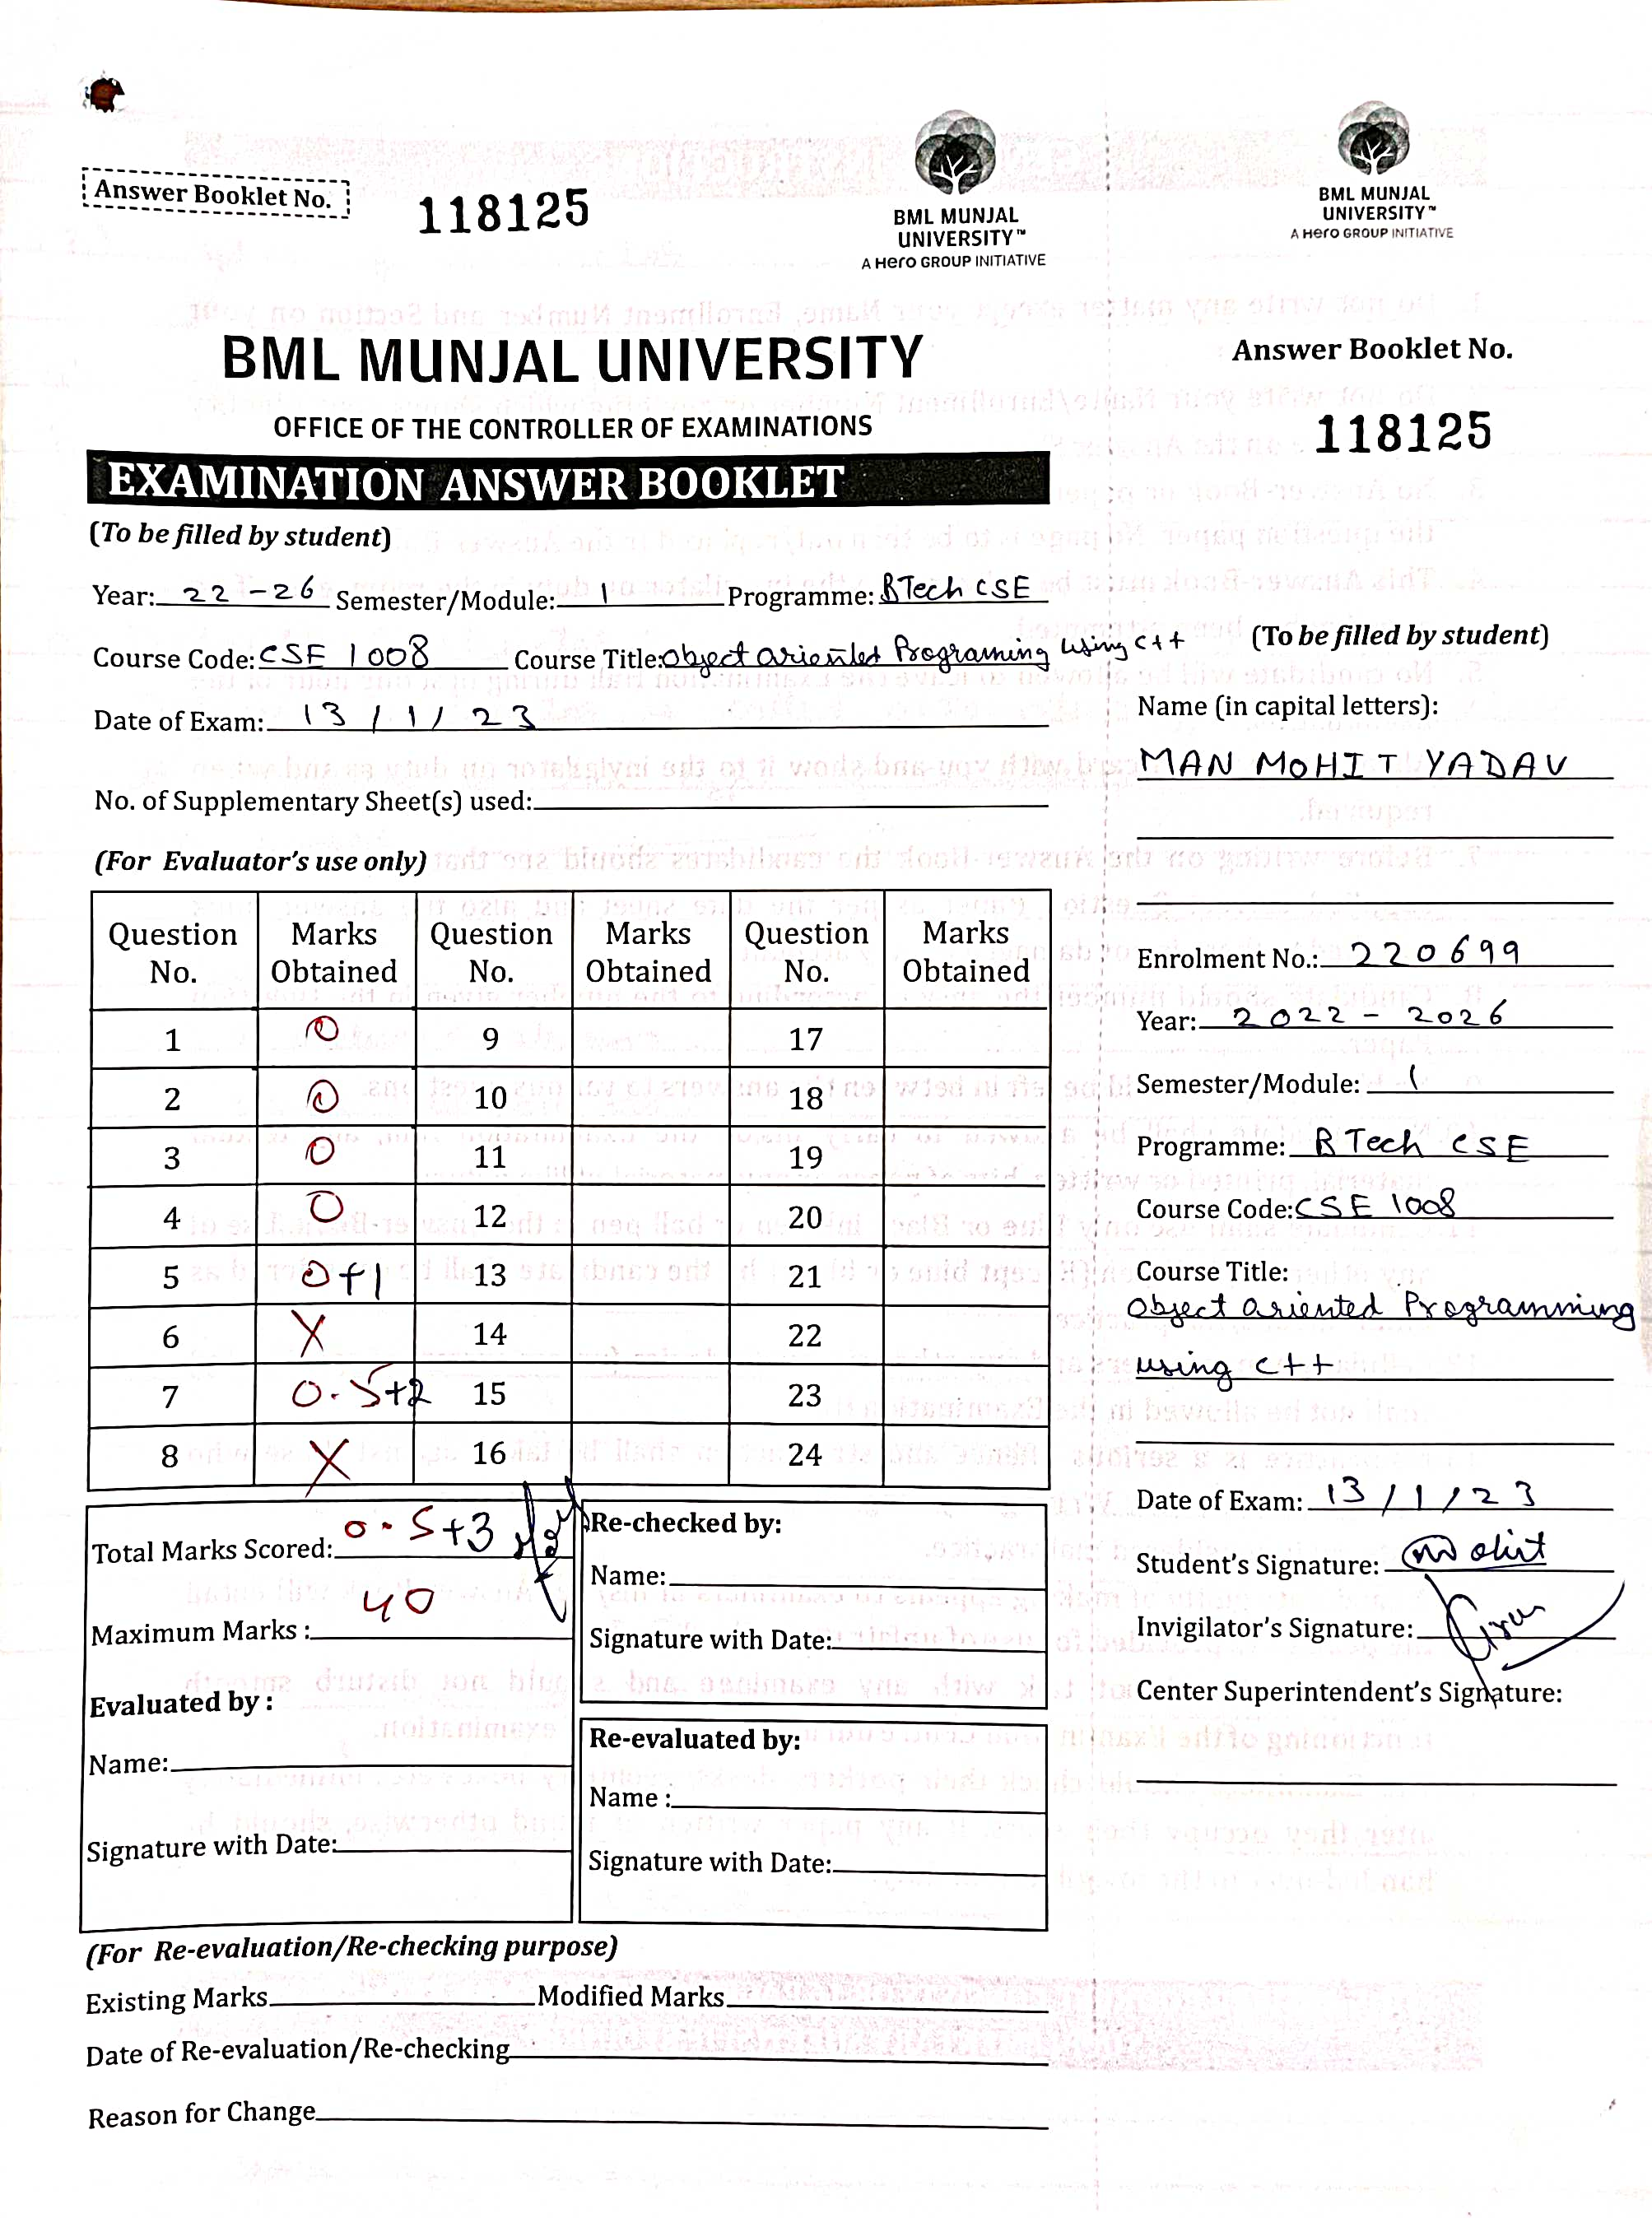 Answer Booklet No. 118125
BML MUNJAL
UNIVERSITY™
A Hero GROUP INITIATIVE
BML MUNJAL UNIVERSITY
OFFICE OF THE CONTROLLER OF EXAMINATIONS
EXAMINATION ANSWER BOOKLET
(To be filled by student)
Year: 22-26 Semester/Module: 1 Programme: BTech CSE
Course Code: CSE 1008 Course Title: Object oriented Programing using C++
Date of Exam: 13/1/23
No. of Supplementary Sheet(s) used:
(For Evaluator's use only)
Question No. Marks Obtained Question No. Marks Obtained Question No. Marks Obtained
1 0 9 17
2 0 10 18
3 0 11 19
4 0 12 20
5 0+1 13 21
6 X 14 22
7 0.5+2 15 23
8 X 16 24
Total Marks Scored: 0.5+3
Maximum Marks : 40
Evaluated by :
Name:
Signature with Date:
Re-checked by:
Name:
Signature with Date:
Re-evaluated by:
Name :
Signature with Date:
(For Re-evaluation/Re-checking purpose)
Existing Marks Modified Marks
Date of Re-evaluation/Re-checking
Reason for Change
BML MUNJAL
UNIVERSITY™
A Hero GROUP INITIATIVE
Answer Booklet No.
118125
(To be filled by student)
Name (in capital letters):
MAN MOHIT YADAV
Enrolment No.: 220699
Year: 2022 - 2026
Semester/Module: 1
Programme: B Tech CSE
Course Code: CSE 1008
Course Title:
Object oriented Programming
using C++
Date of Exam: 13/1/23
Student's Signature: Mohit
Invigilator's Signature:
Center Superintendent's Signature: